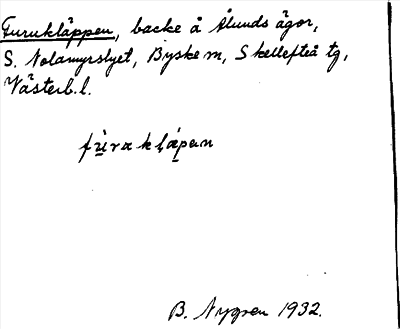 Furukläppen, backe å Ålunds ägor,
S. Nolamyrslyet, Byske m, Skellefteå tg,
Västerb. l.
fùrakḷápan
B. Nygren 1932.